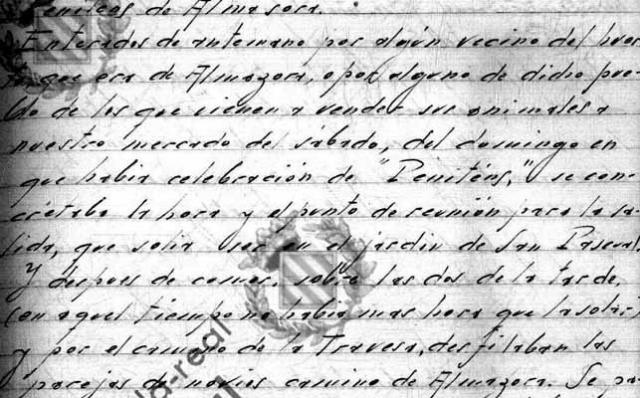 Peniteos de Almasora.
Enterados de antemano por algún vecino del nues
que era de Almazora, o por alguno de dicho pue-
blo de los que vienen a vender sus animales a
nuestro mercado del sábado, del domingo en
que había celebración de "Peniténs," se con-
crétaba la hora y el punto de reunión para la sa-
lida, que solía ser en el jardín de San Pascual
Y despues de comer, sobre las dos de la tarde,
(en aquel tiempo no había mas hora que la solar)
y por el camino de la Travesa, desfilaban las
parejas de novios camino de Almazora. Se pa
la-real